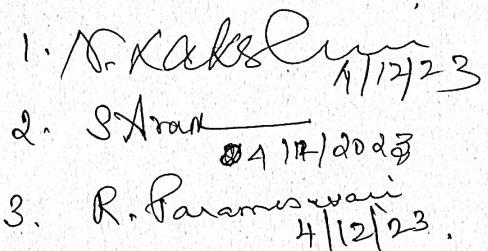 1. N. Lakshmi
4/12/23
2. S
04/12/2023
3. R. Parameswari
4/12/23.